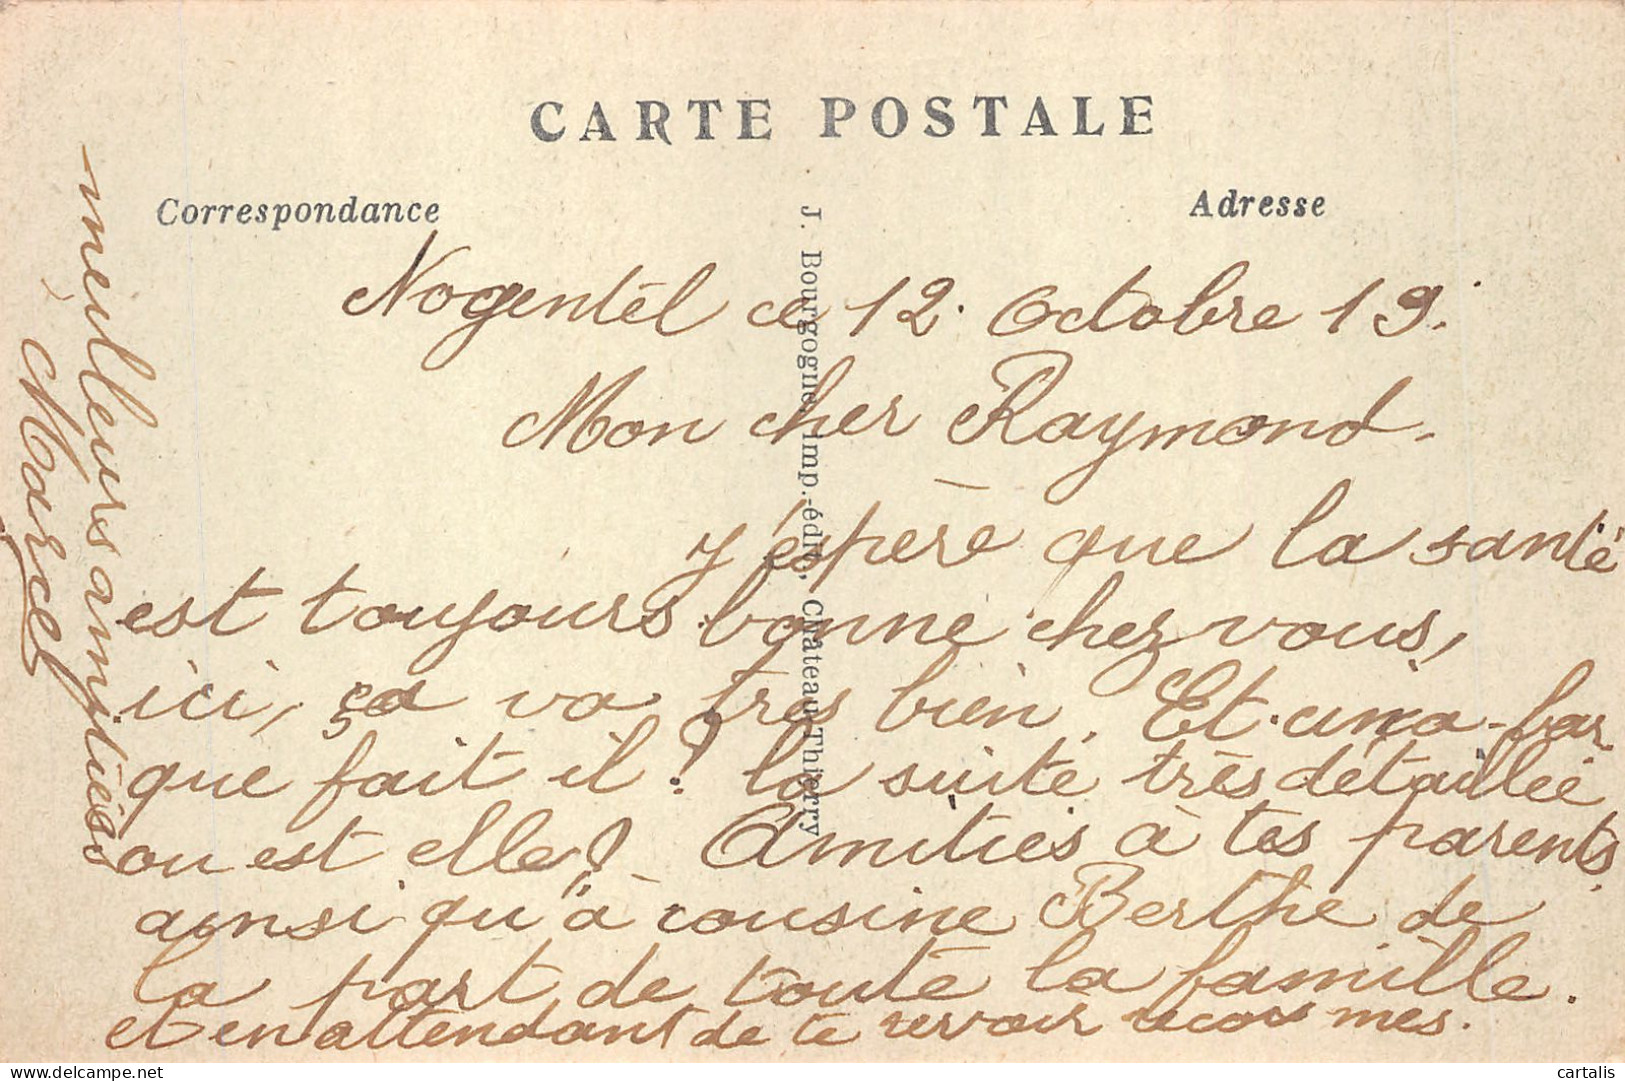 CARTE POSTALE
Correspondance
Adresse
J. Bourgogne, imp.-édit., Château-Thierry
Nogentel ce 12. Octobre 19.
Mon cher Raymond.
J'éspère que la santé
est toujours bonne chez vous,
ici, ça va très bien. Et
que fait il? la suite très détaillée
ou est elle? Amitiés à tes parents
ainsi qu'à cousine Berthe de
la part de toute la famille.
et en attendant de te revoir mes.
meilleurs amitiés.
Marcel
https://www.delcampe.net
cartalis